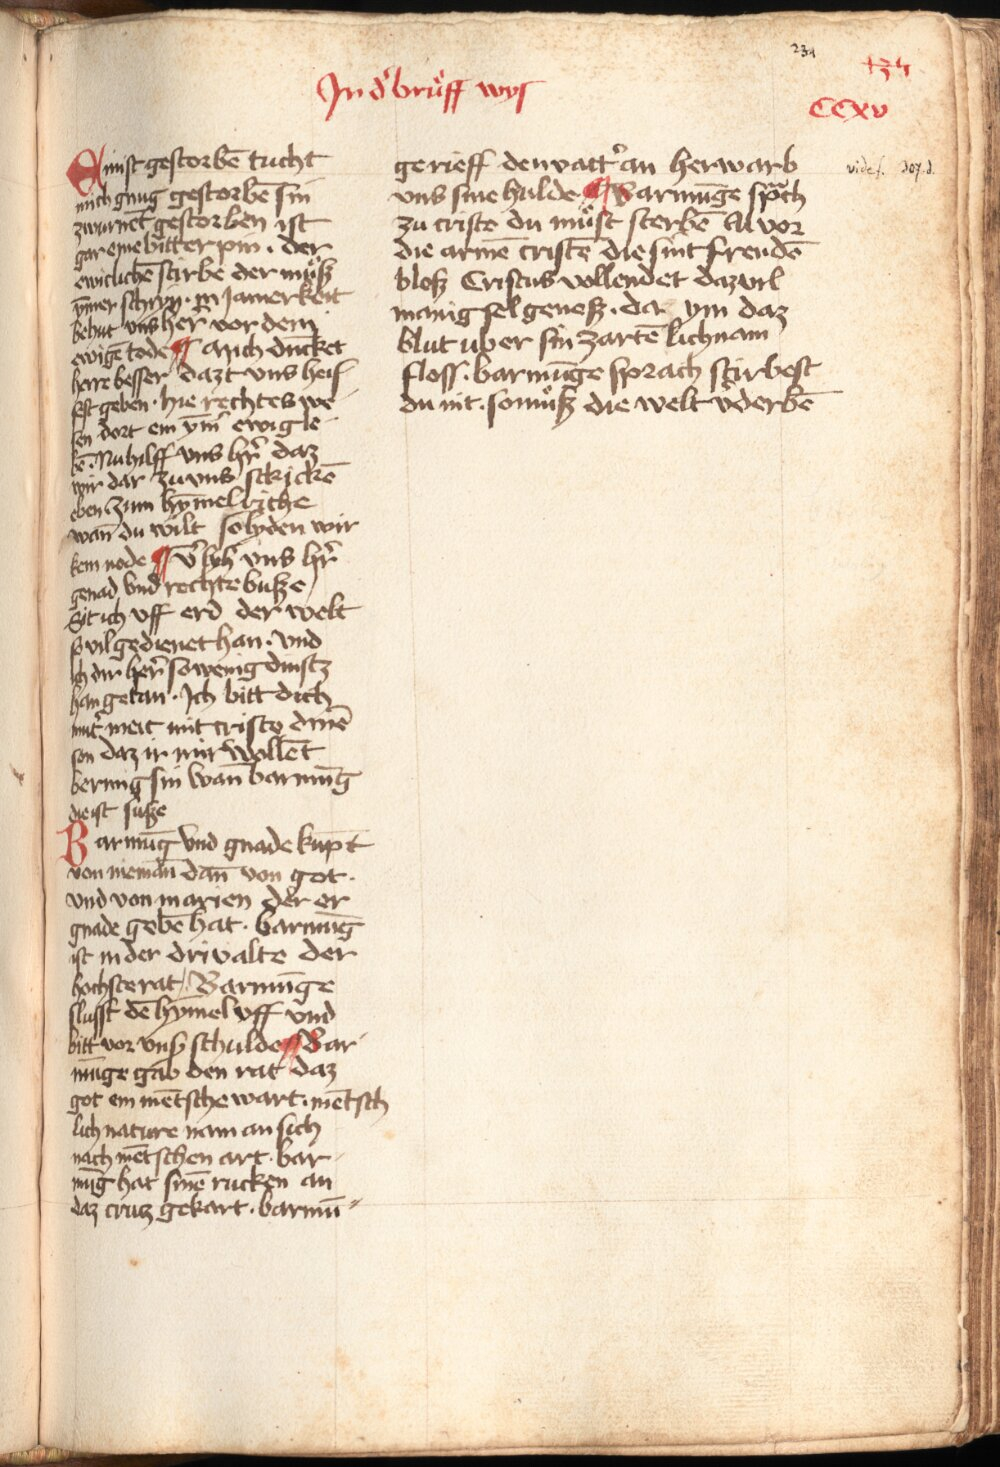 231
In dʼ brüff wys
CCXV
vide f. 307. d.
Einist gestorbē tucht
mich gnug gestorbē sin
zwurnēt gestorben ist
gar eine bitter pin · der
ewiclichē stirbe der muͦß
ym̄er schryn · In Jamerkeit
behut vns her vor dem
ewigē tode ¶ auch dūcket
herre besser daz t vns heis
sest geben · hie rechtes we
sen dort ein ym̄ʼ ewig le
bē · Nu hilff vns hrʼ daz
wir dar zu vns schickē
eben zum hȳmelriche
wan̄ du wilt so lyden wir
kein node ¶ vʼlyh vns hrʼ
genad vnd rechte buße
Sit ich vff erd der welt
so vil gedienet han · vnd
ich dir herʼ so wenig dinstz
han getan · Ich bitt dich
mutʼ meit mit cristo dinē
son daz ir mir wollēt
bermig sin wan̄ barmūg
die ist suße
Barmūg vnd gnade kūpt
von nieman̄ dan̄ von got ·
vnd von marien der er
gnade gebē hat · barmūg
ist in der drivalte der
hochste rat / Barmūge
slusst dē hȳmel vff vnd
bitt vor vnsʼ schulde ¶ Bar
mūge gab den rat daz
got ein mētsche wart · mētsch
lich nature nam an sich
nach mētschen art · bar
mūg hat sinē rucken an
daz crutz gekart · barmū
ge rieff den vattʼ an herwarb
vns sine hulde ¶ Barmūge sprāch
zu criste du muͦst sterbē All vor
die armē cristē die sint freudē
bloß Cristus vollendet daz vil
manig sel geneß · da ym daz
blut uber sin zartē lichnam
floss · barmūge sprach stirbest
du nit · so muͦß die welt vʼderbē